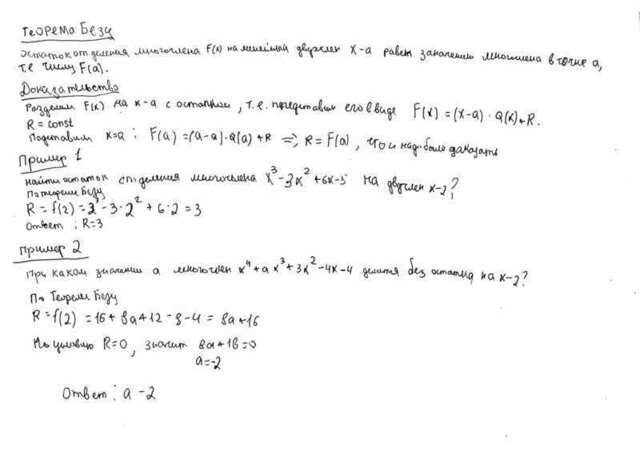 Теорема Безу
Остаток от деления многочлена F(x) на линейный двучлен x-a равен значению многочлена в точке a,
т.е числу F(a).
Доказательство
Разделим F(x) на x-a с остатком, т.е. представим его в виде F(x)=(x-a)·Q(x)+R.
R = const
Подставим x=a: F(a)=(a-a)·Q(a)+R => R=F(a), что и надо было доказать
Пример 1
Найти остаток от деления многочлена x³-3x²+6x-5 на двучлен x-2?
По теореме Безу
R=f(2)=2³-3·2²+6·2=3
Ответ: R=3
Пример 2
При каком значении a многочлен x⁴+ax³+3x²-4x-4 делится без остатка на x-2?
По Теореме Безу
R=f(2)=16+8a+12-8-4=8a+16
По условию R=0, значит 8a+16=0
a=-2
Ответ: a-2